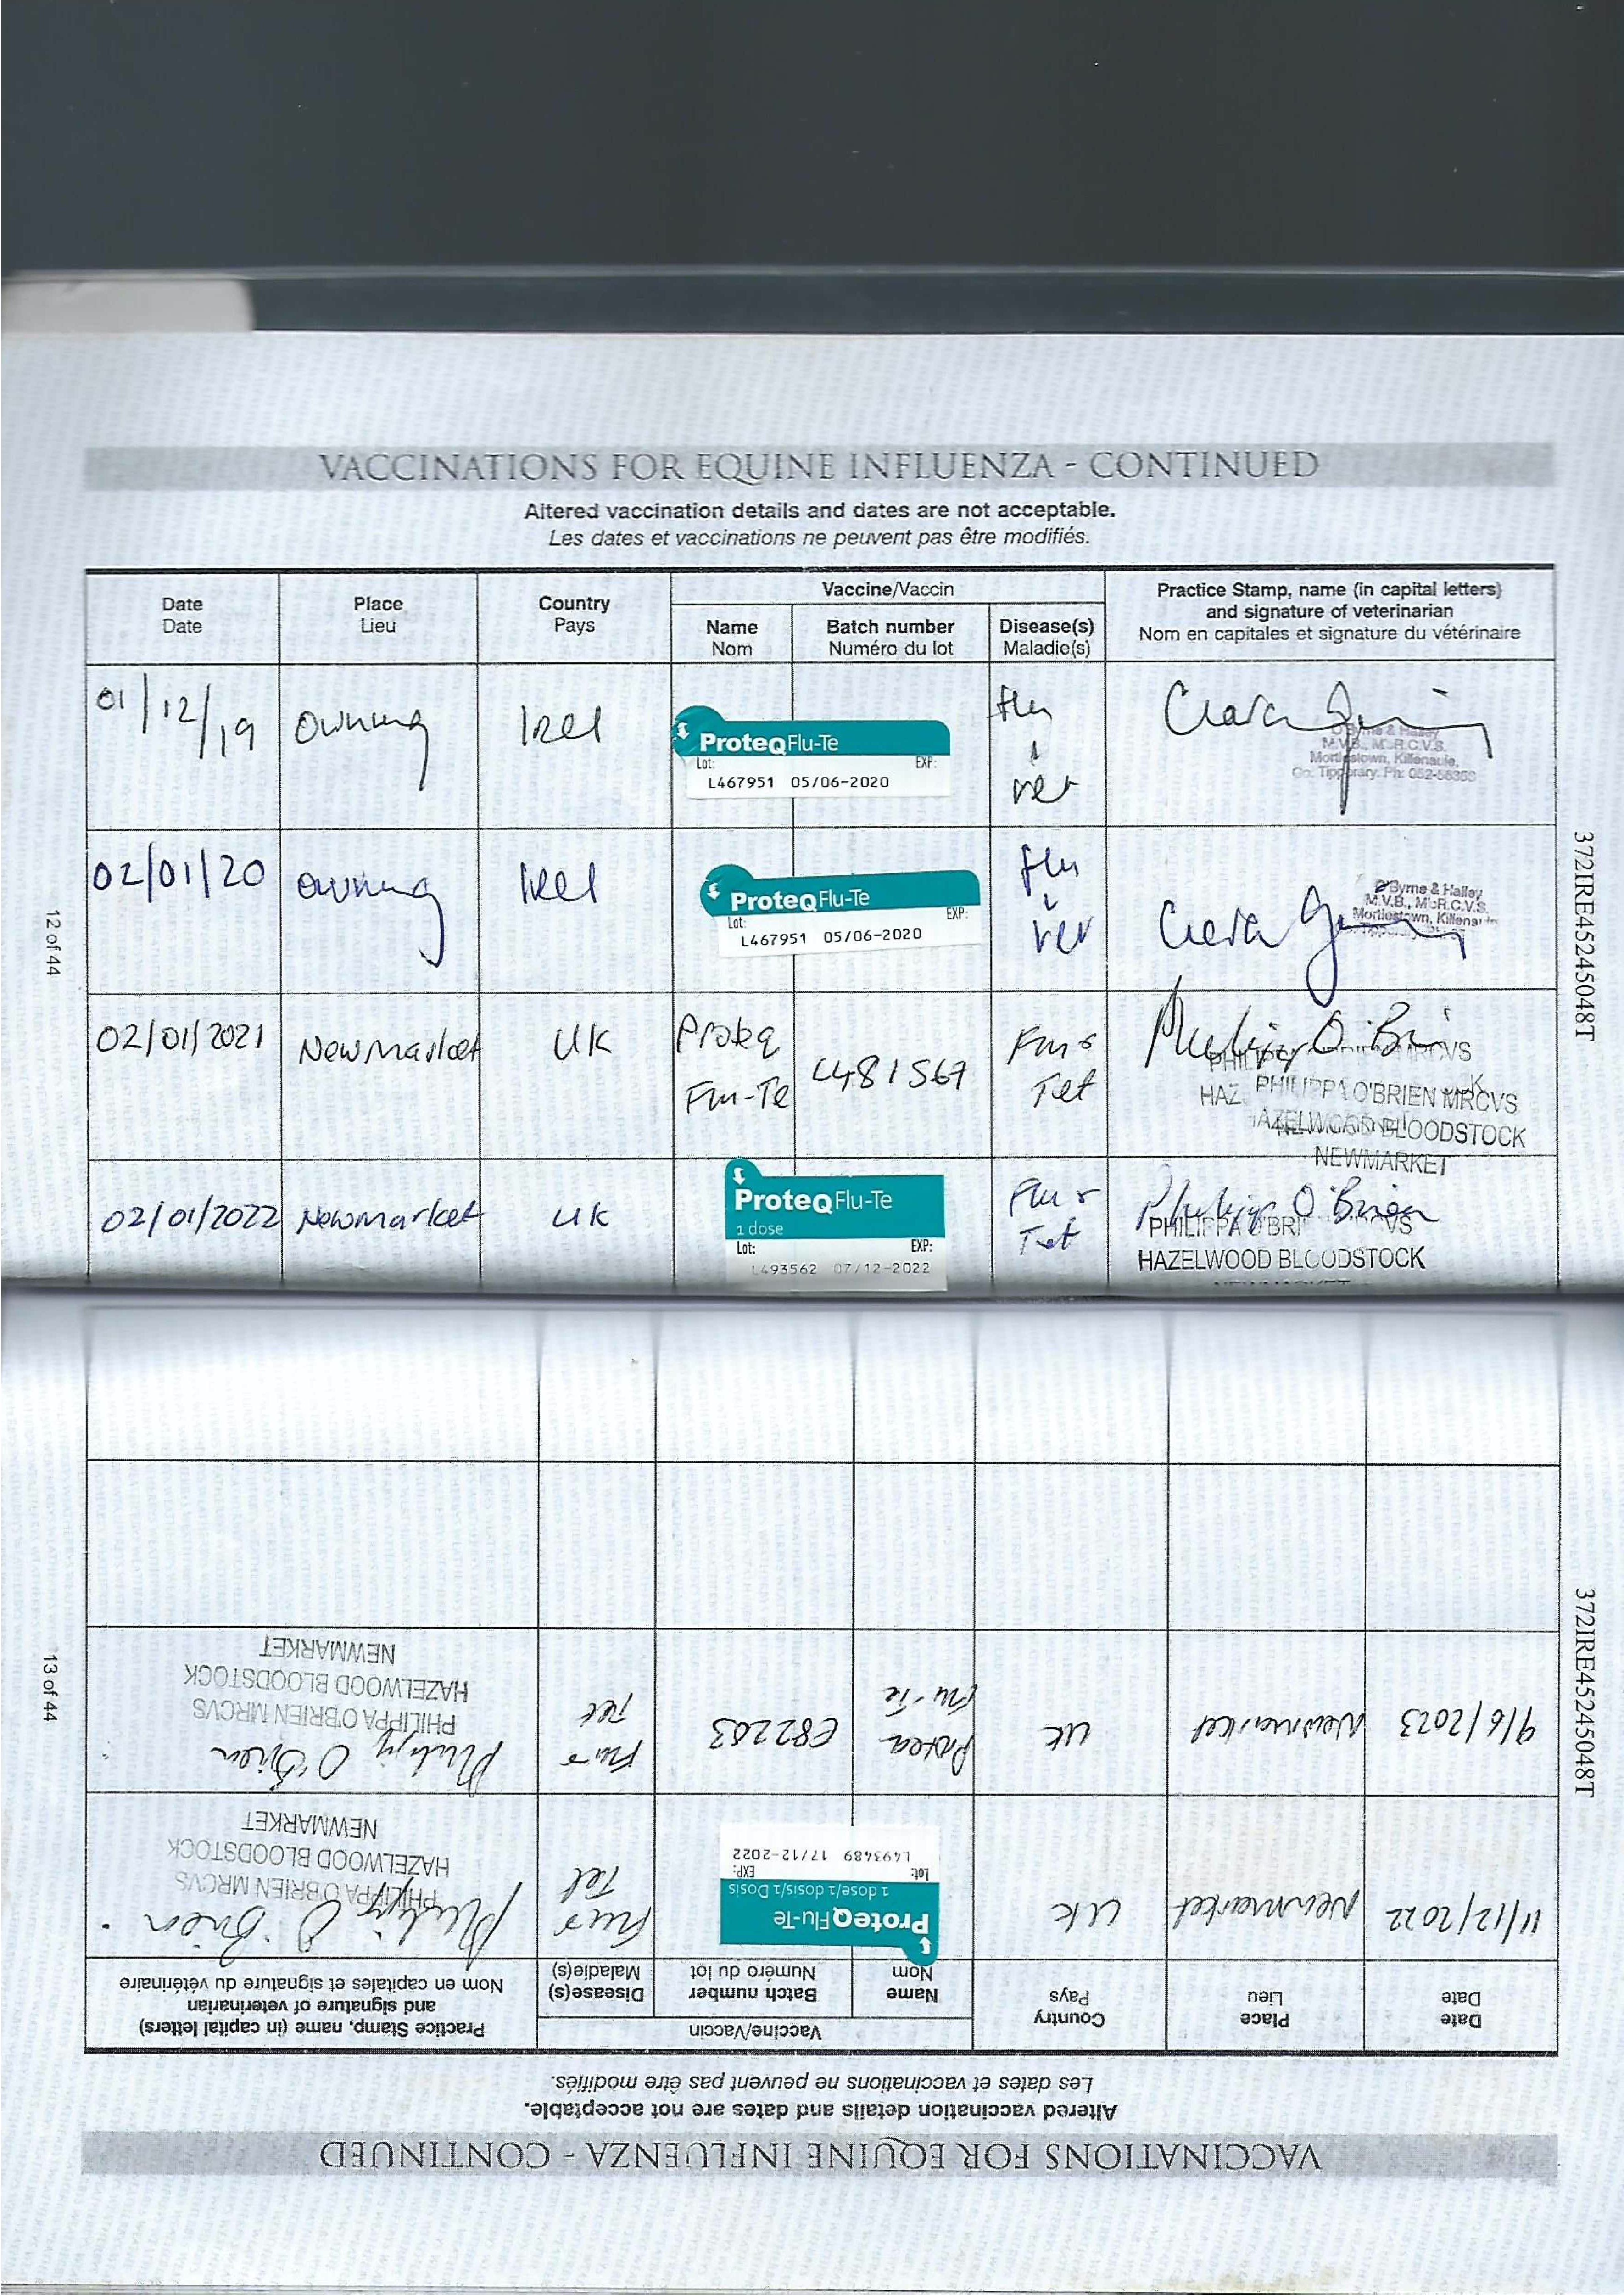 VACCINATIONS FOR EQUINE INFLUENZA - CONTINUED
Altered vaccination details and dates are not acceptable.
Les dates et vaccinations ne peuvent pas être modifiés.
Date
Date
Place
Lieu
Country
Pays
Vaccine/Vaccin
Name
Nom
Batch number
Numéro du lot
Disease(s)
Maladie(s)
Practice Stamp, name (in capital letters)
and signature of veterinarian
Nom en capitales et signature du vétérinaire
01/12/19
Owning
Irel
ProteqFlu-Te
Lot: EXP:
L467951 05/06-2020
flu
Ciara
O'Byrne & Halley
M.V.B., M.R.C.V.S.
Mortlestown, Killenaule,
Co. Tipperary. Ph: 052-56356
02/01/20
owning
Irel
ProteqFlu-Te
Lot: EXP:
L467951 05/06-2020
flu
Ciara
O'Byrne & Halley
M.V.B., M.R.C.V.S.
Mortlestown, Killenaule
02/01/2021
Newmarket
UK
Proteq
Flu-Te
L481567
Flu &
Tet
PHILIPPA O'BRIEN MRCVS
HAZELWOOD BLOODSTOCK
NEWMARKET
02/01/2022
Newmarket
UK
ProteqFlu-Te
1 dose
Lot: EXP:
L493562 07/12-2022
Flu &
Tet
Philippa O'Brien
PHILIPPA O'BRIEN MRCVS
HAZELWOOD BLOODSTOCK
NEWMARKET
12 of 44
372IRE45245048T
VACCINATIONS FOR EQUINE INFLUENZA - CONTINUED
Altered vaccination details and dates are not acceptable.
Les dates et vaccinations ne peuvent pas être modifiés.
Date
Date
Place
Lieu
Country
Pays
Vaccine/Vaccin
Name
Nom
Batch number
Numéro du lot
Disease(s)
Maladie(s)
Practice Stamp, name (in capital letters)
and signature of veterinarian
Nom en capitales et signature du vétérinaire
11/12/2022
Newmarket
UK
ProteqFlu-Te
1 dose/1 dosis/1 Dosis
Lot: EXP:
L493489 17/12-2022
Flu &
Tet
Philippa O'Brien
PHILIPPA O'BRIEN MRCVS
HAZELWOOD BLOODSTOCK
NEWMARKET
9/6/2023
Newmarket
UK
Proteq
Flu-Te
E82203
Flu &
Tet
Philippa O'Brien
PHILIPPA O'BRIEN MRCVS
HAZELWOOD BLOODSTOCK
NEWMARKET
13 of 44
372IRE45245048T